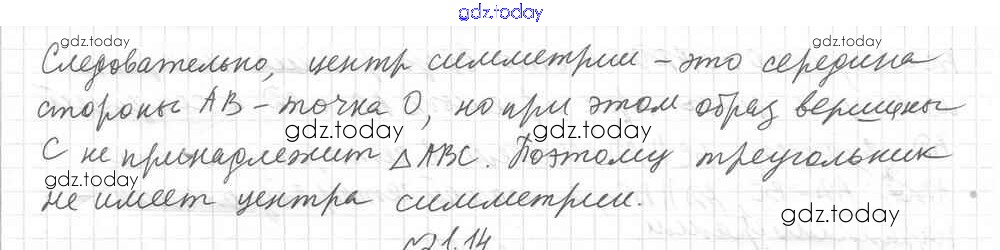 gdz.today
gdz.today
gdz.today
Следовательно, центр симметрии – это середина
стороны AB – точка O, но при этом образ вершины
gdz.today
gdz.today
C не принадлежит △ABC. Поэтому треугольник
gdz.today
не имеет центра симметрии.
gdz.today
gdz.today
21.14